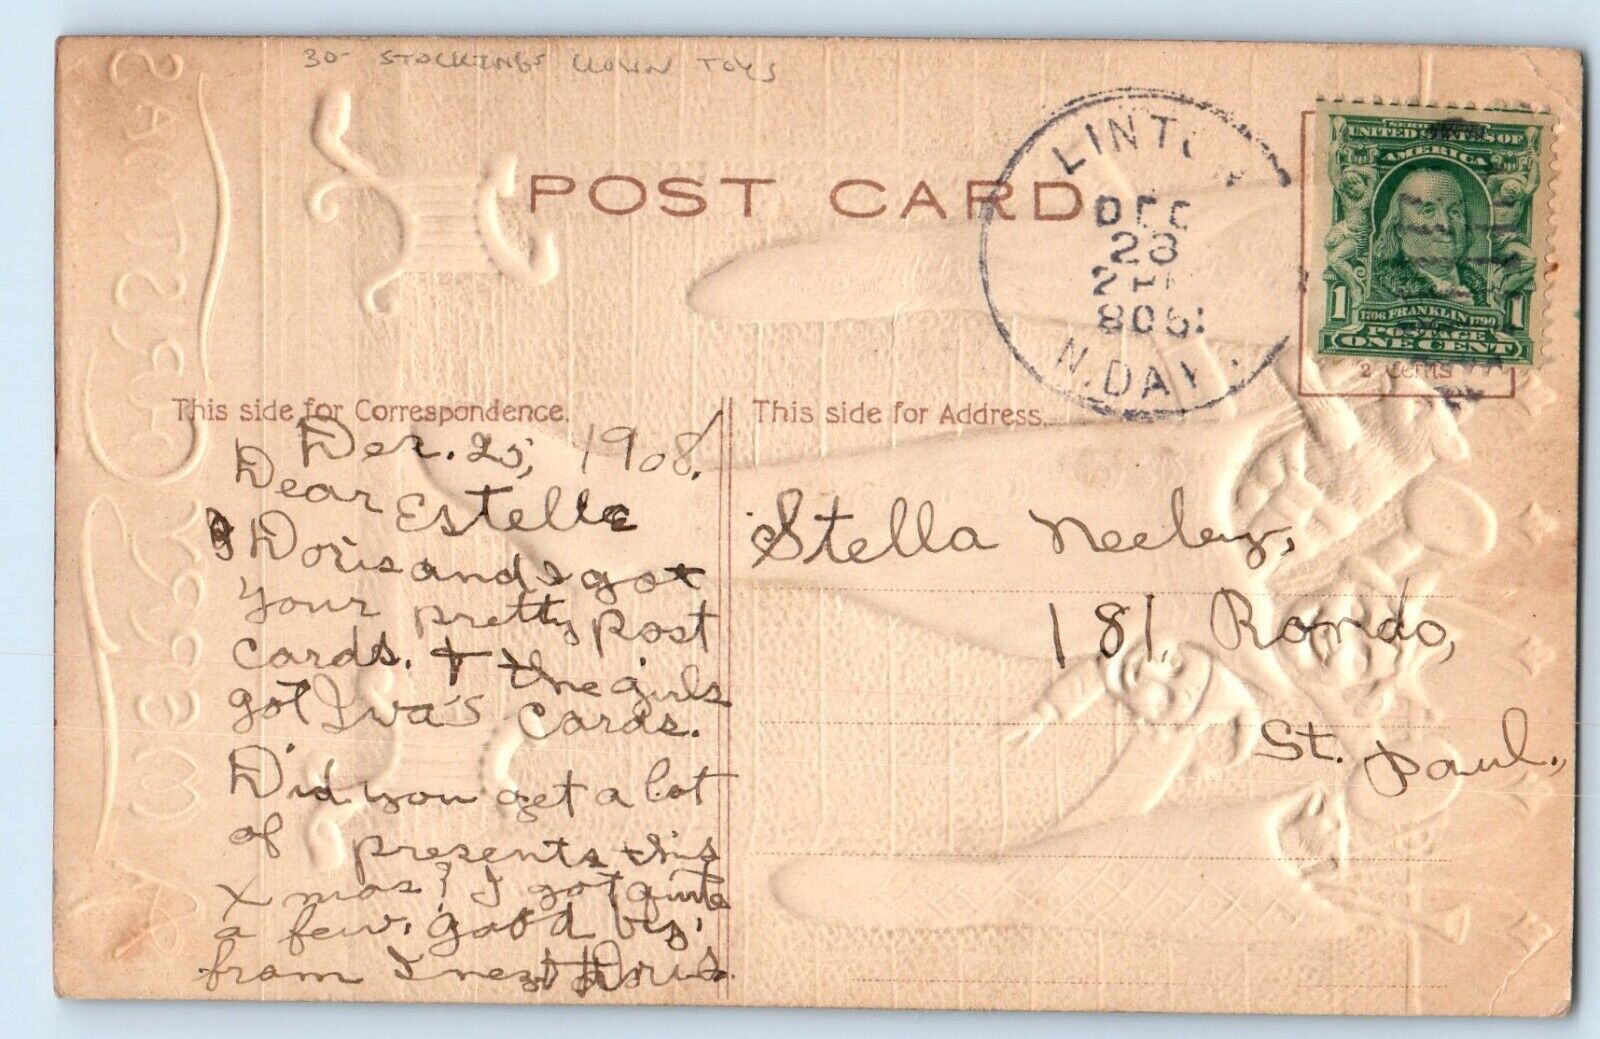 30- STOCKINGS CLOWN TOYS
POST CARD
LINTON
DEC
28
1908
N.DAK.
SERIES 1902
UNITED STATES OF
AMERICA
1 1
1706 FRANKLIN 1790
POSTAGE
ONE CENT
2 Cents
This side for Correspondence.
This side for Address.
Dec. 25, 1908.
Dear Estelle
Doris and I got
your pretty post
cards. + the girls
got Iva's cards.
Did you get a lot
of presents this
Xmas? I got quite
a few. good bys,
from Inez + Doris.
Stella Neeley,
181, Rondo,
St. Paul.,